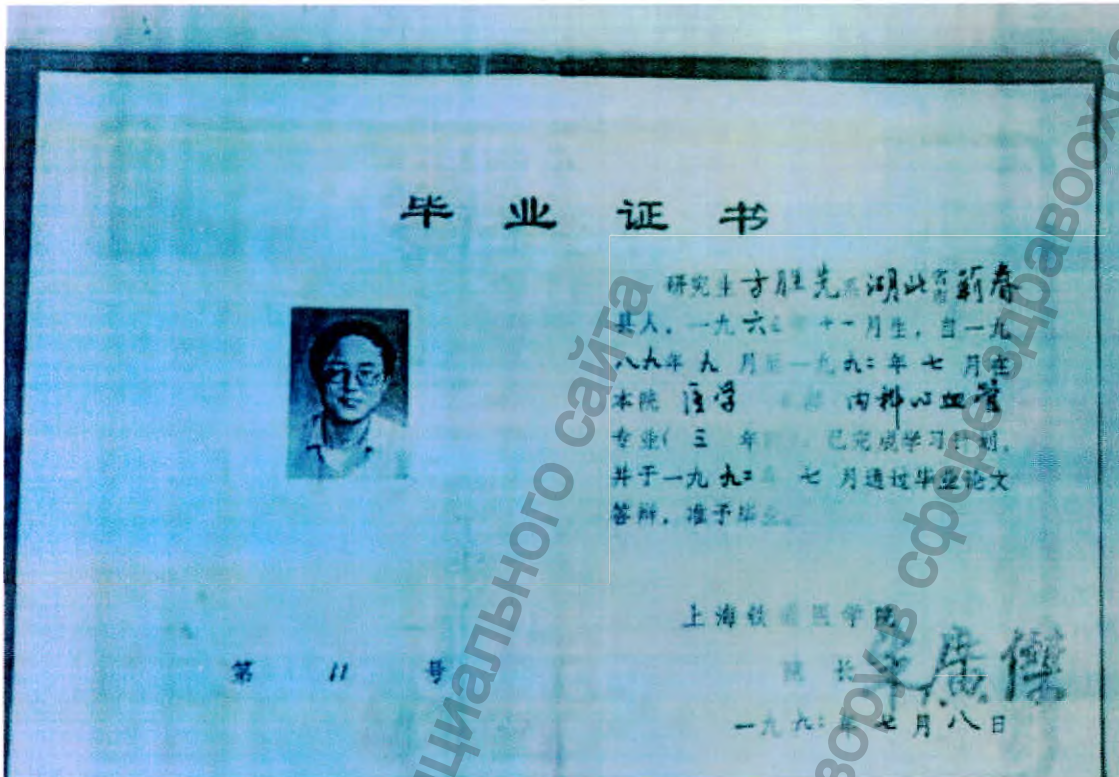 毕业证书
研究生方胜先系湖北省蕲春
县人，一九六 年十一月生，自一九
八九年九月至一九九二年七月在
本院医学 内科心血管
专业(三年制)，已完成学习计划，
并于一九九二年七月通过毕业论文
答辩，准予毕业。
上海铁道医学院
院长
第 11 号
一九九二年七月八日
циального сайта
в сфере здравоохр